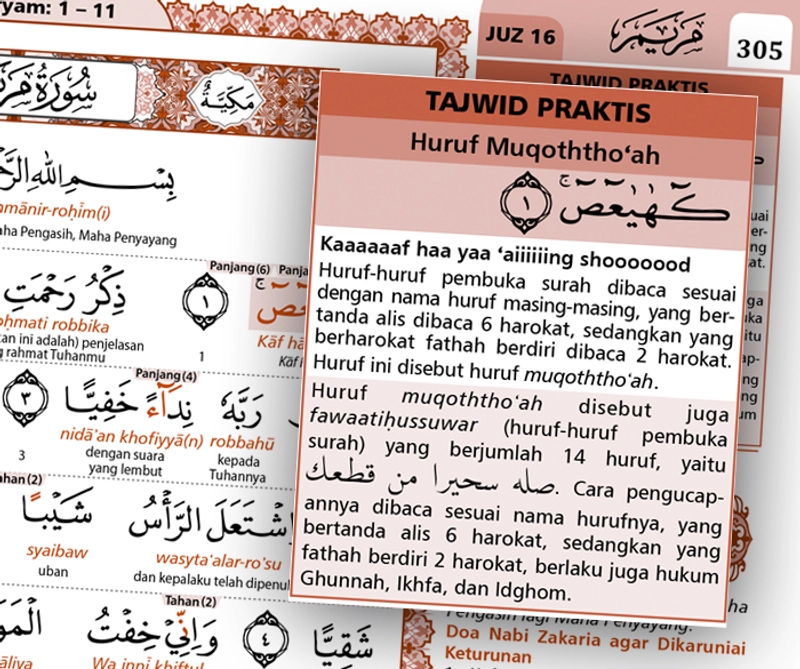 yam: 1 – 11
JUZ 16
مريم
305
سُورَةُ مَرْيَمَ
مَكِيَّةٌ
TAJWID PRAKTIS
TAJWID PRAKTIS
Huruf Muqoththo‘ah
كۤهٰيٰعۤصۤ ۚ ١
Kaaaaaaf haa yaa ‘aiiiiiing shooooood
Huruf-huruf pembuka surah dibaca sesuai
dengan nama huruf masing-masing, yang ber-
tanda alis dibaca 6 harokat, sedangkan yang
berharokat fathah berdiri dibaca 2 harokat.
Huruf ini disebut huruf muqoththo‘ah.
Huruf muqoththo‘ah disebut juga
fawaatiḥussuwar (huruf-huruf pembuka
surah) yang berjumlah 14 huruf, yaitu
صله سحيرا من قطعك. Cara pengucap-
annya dibaca sesuai nama hurufnya, yang
bertanda alis 6 harokat, sedangkan yang
fathah berdiri 2 harokat, berlaku juga hukum
Ghunnah, Ikhfa, dan Idghom.
بِسْمِ اللهِ
mānir-roḥīm(i)
aha Pengasih, Maha Penyayang
Panjang(6) Panja
ذِكْرُ رَحْمَتِ ١
oḥmati robbika 1 Kāf hā
an ini adalah) penjelasan Kāf
rahmat Tuhanmu
Panjang(4)
رَبَّهٗ نِدَاۤءً خَفِيًّا ٣
nidā'an khofiyyā(n) robbahū
3 dengan suara kepada
yang lembut Tuhannya
ahan(2)
اشْتَعَلَ الرَّأْسُ شَيْبًا
syaibaw wasyta‘alar-ro'su
uban dan kepalaku telah dipenu
Tahan(2)
شَقِيًّا ٤ وَاِنِّيْ خِفْتُ
Wa innī khiftul
Pengasih lagi Maha Penyayang.
Doa Nabi Zakaria agar Dikaruniai
Keturunan